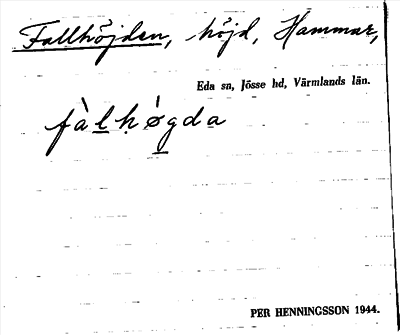 Fallhöjden, höjd, Hammar,
Eda sn, Jösse hd, Värmlands län.
fàlhǿgda
PER HENNINGSSON 1944.